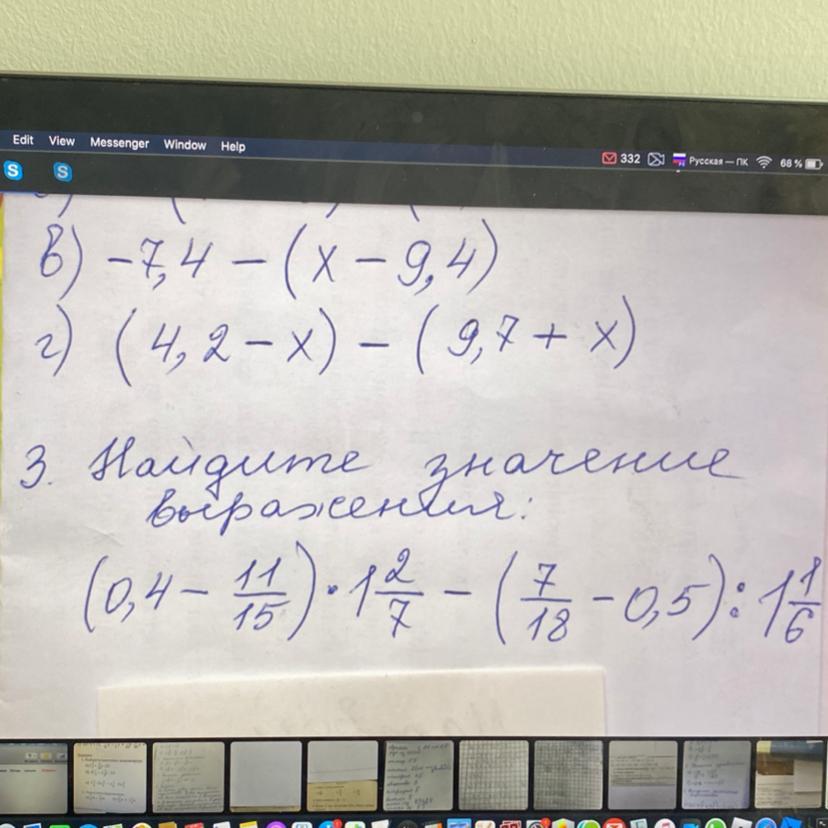 Edit View Messenger Window Help
332 Русская — ПК 68 %
в) -7,4 - (x - 9,4)
г) (4,2 - x) - (9,7 + x)
3. Найдите значение
выражения:
(0,4 - 11/15) · 1 2/7 - (7/18 - 0,5) : 1 1/6